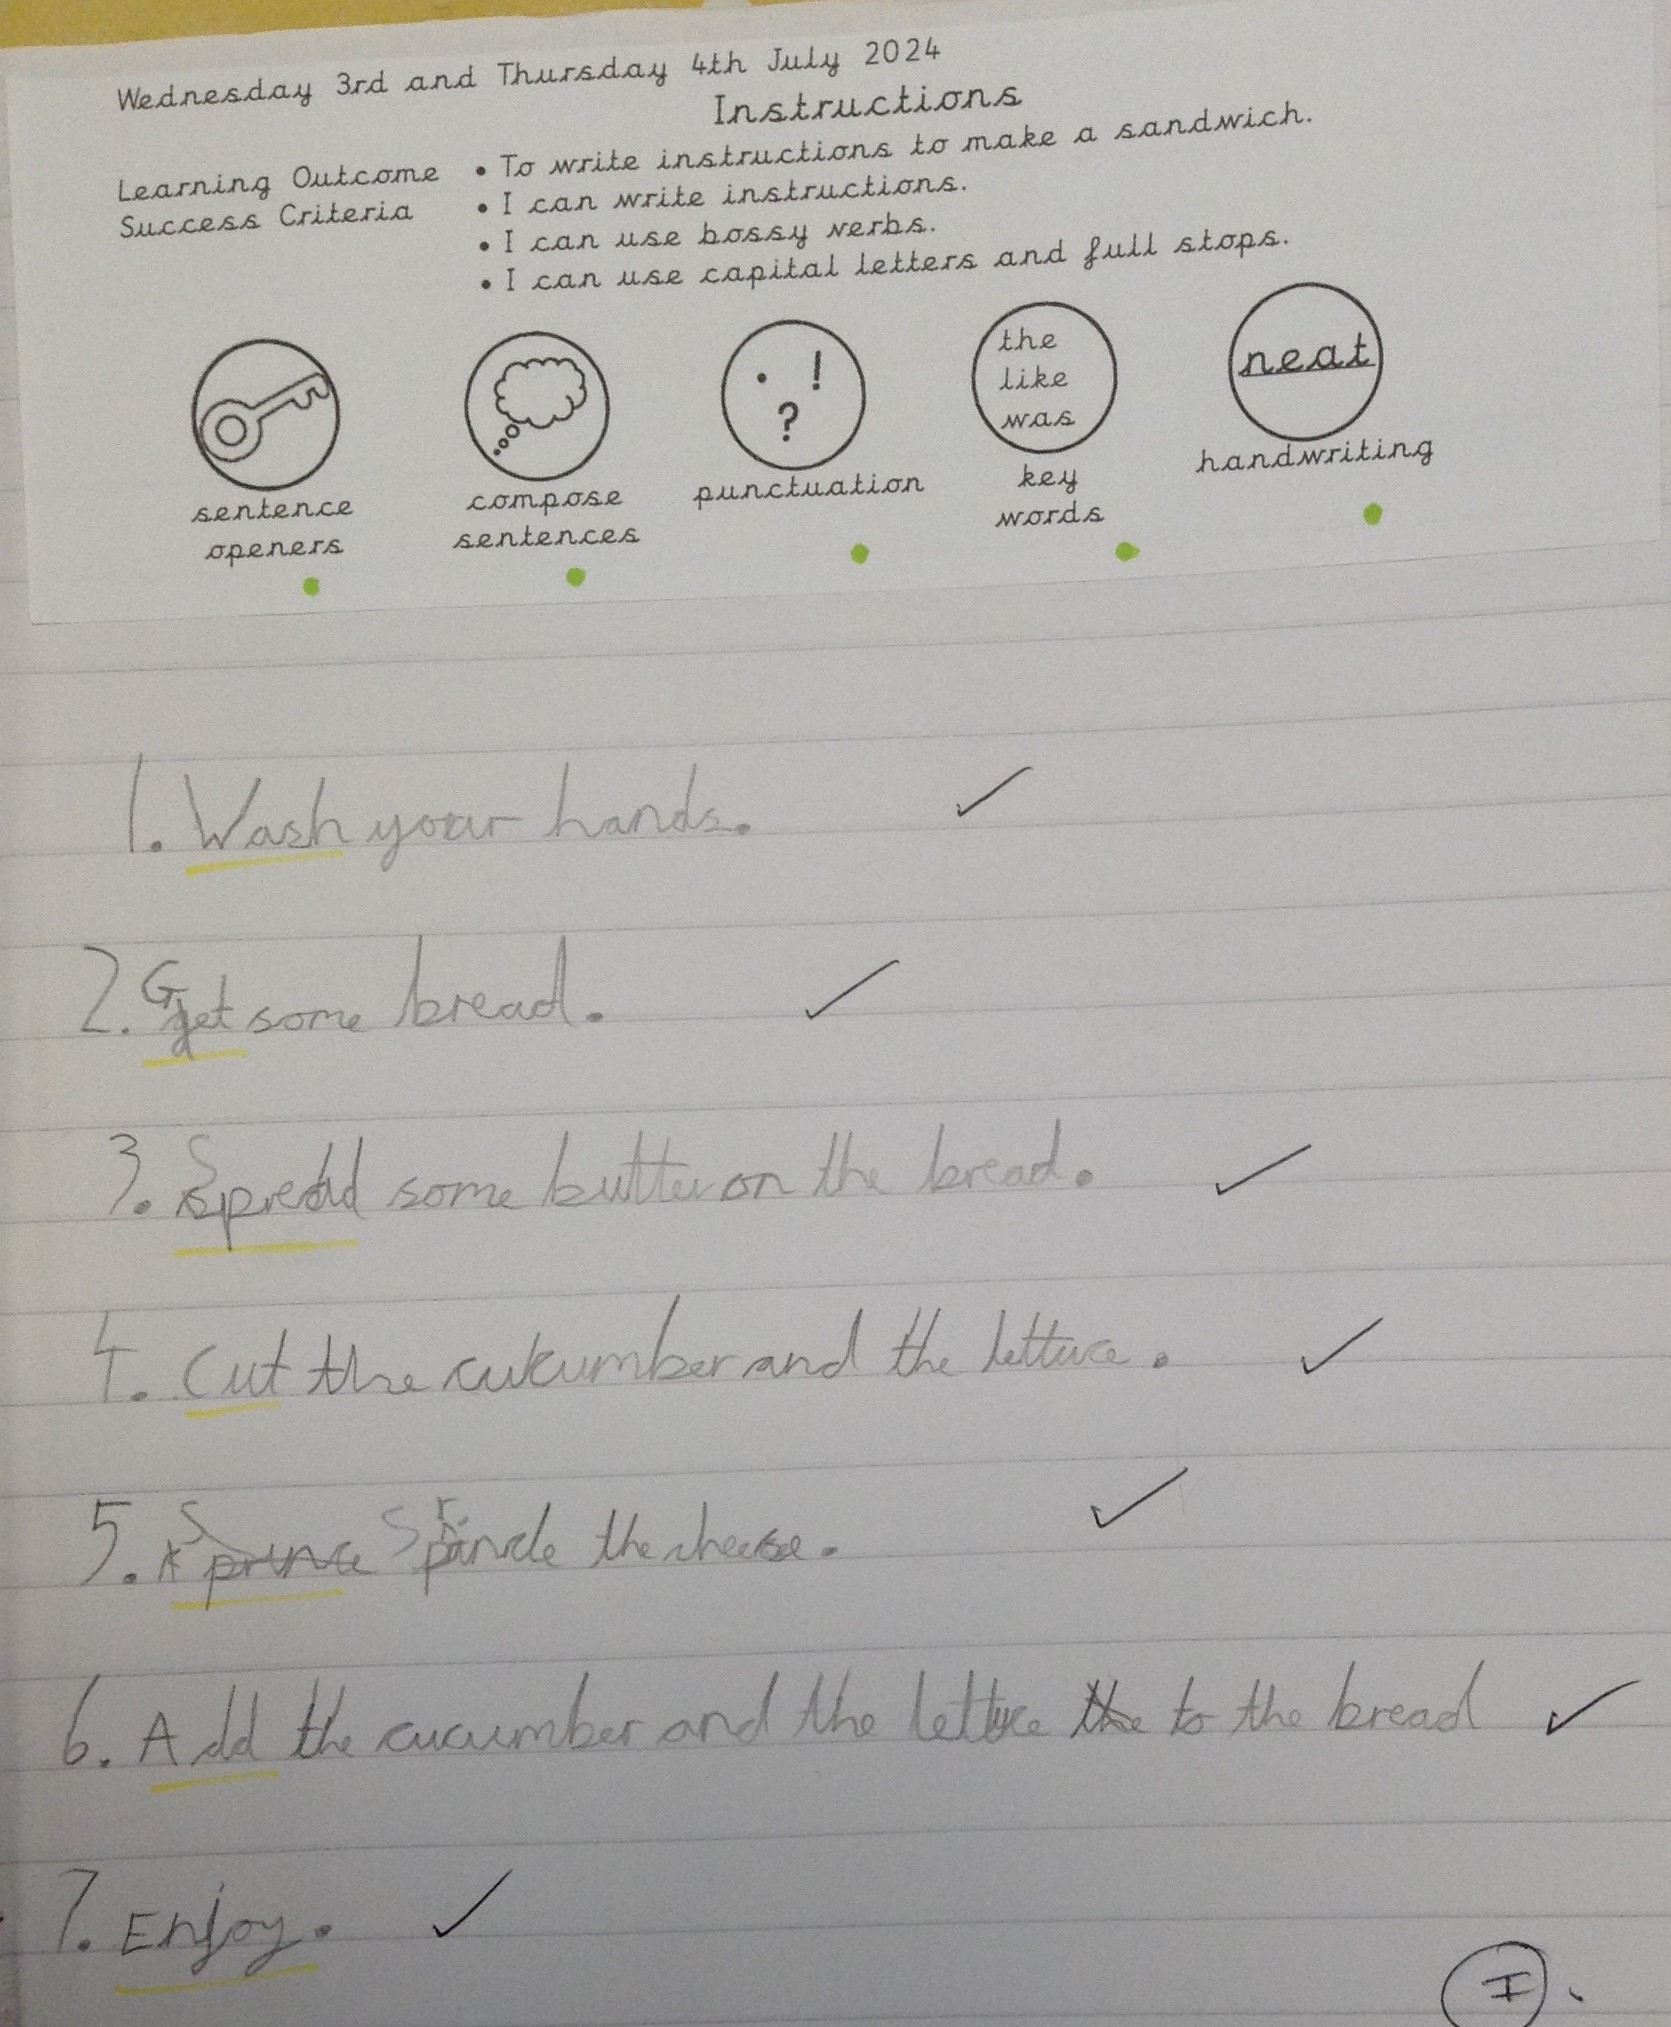 Wednesday 3rd and Thursday 4th July 2024
Instructions
Learning Outcome • To write instructions to make a sandwich.
Success Criteria • I can write instructions.
• I can use bossy verbs.
• I can use capital letters and full stops.
. ! ?
the
like
was
neat
sentence openers
compose sentences
punctuation
key words
handwriting
1. Wash your hands.
2. Get some bread.
3. Spread some butter on the bread.
4. Cut the cukumber and the lettuce.
5. the cheese.
6. Add the cucumber and the lettuce to the bread
7. Enjoy.
I.